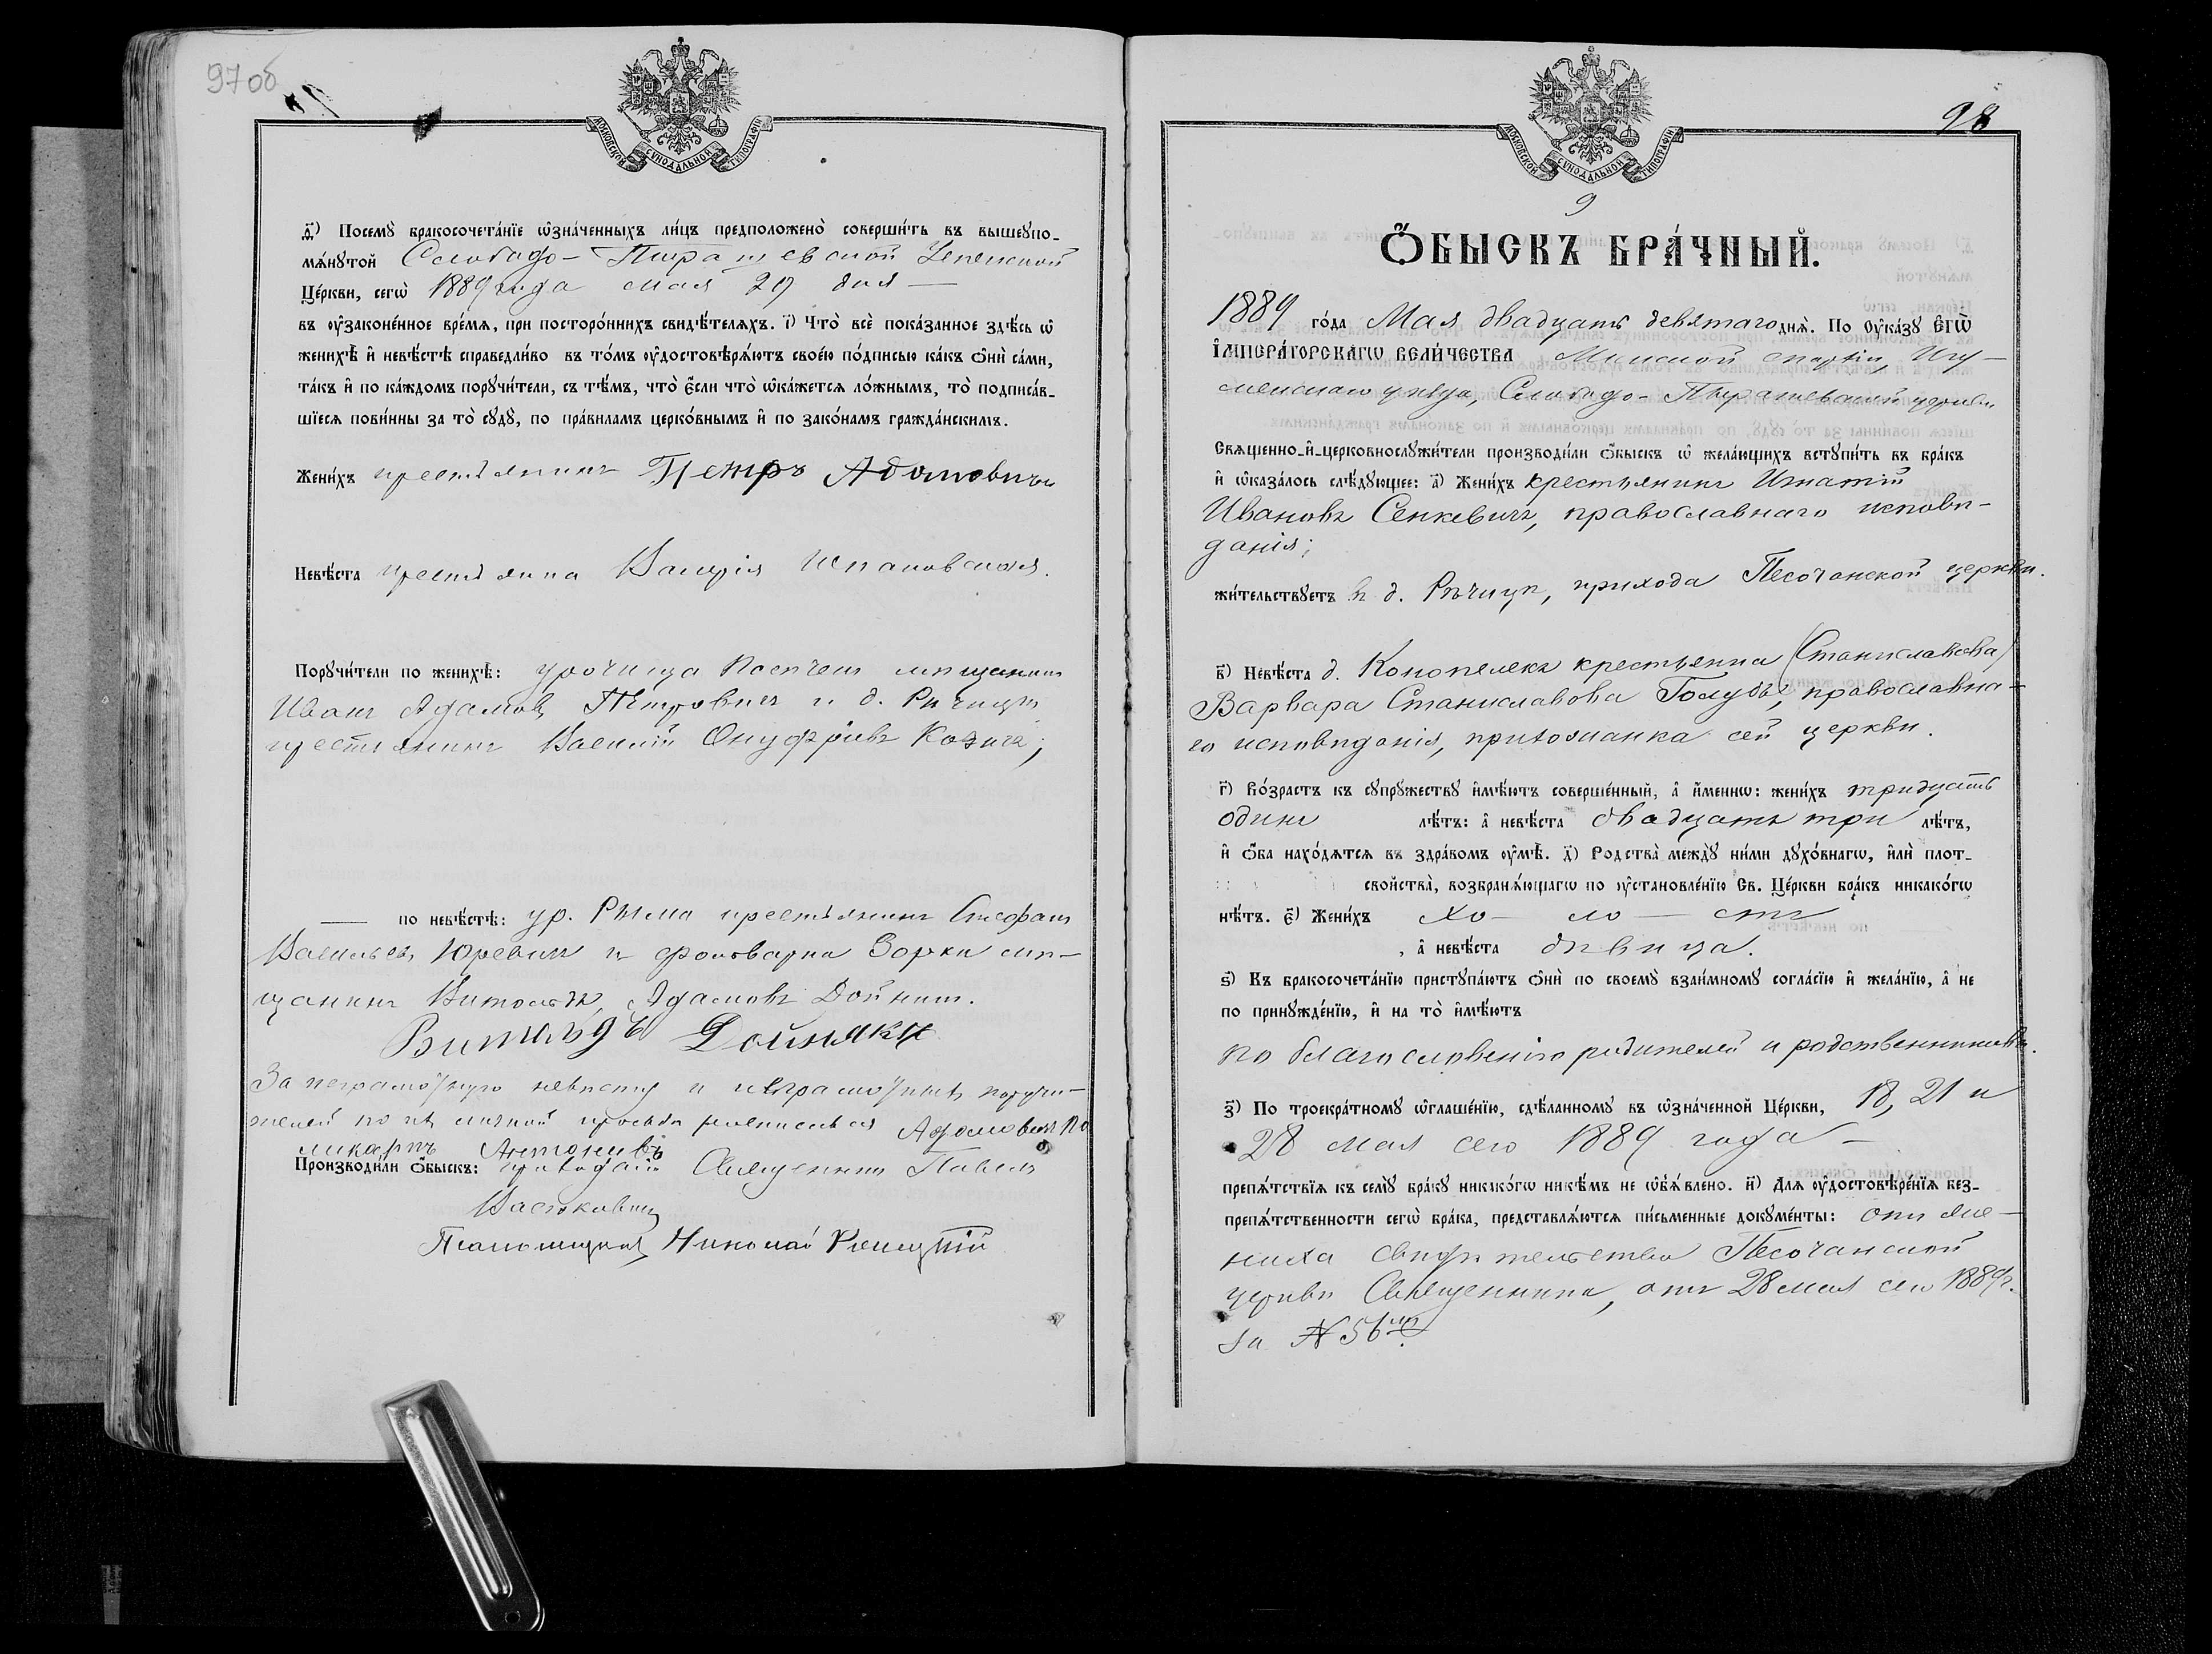 97 об
МОСКОВСКОЙ СѴНОДАЛЬНОЙ ТИПОГРАФІИ
д҃і) Посемꙋ̀ бракосочета́нїе ѡ҆зна́ченныхъ ли́цъ предположено̀ соверши́ть въ вышеꙋпо-
мѧ́нꙋтой Слободо-Пырашевской Успенской
Це́ркви, сегѡ̀ 1889 года мая 29 дня —
въ ᲂу҆законе́нное вре́мѧ, при посторо́ннихъ свидѣ́телѧхъ. і҃) Что̀ всѐ пока́занное здѣ́сь ѡ҆
женихѣ̀ и҆ невѣ́стѣ справедли́во въ то́мъ ᲂу҆достовѣрѧ́ютъ свое́ю по́дписью ка́къ ѻ҆нѝ са́ми,
та́къ и҆ по ка́ждомъ порꙋчи́тели, съ тѣ́мъ, что̀ є҆́сли что̀ ѡ҆ка́жетсѧ ло́жнымъ, то̀ подписа́в-
шїесѧ пови́нны за то̀ сꙋдꙋ̀, по пра́виламъ церко́внымъ и҆ по зако́намъ гражда́нскимъ.
Жени́хъ крестьянинъ Петръ Адамовичъ
Невѣ́ста крестьянка Валерія
Порꙋчи́тели по женихѣ̀: урочища мѣщанинъ
Иванъ Адамовъ Петровичъ и д. Рѣчицы
крестьянинъ Василій Онуфріевъ Козичъ;
— по невѣ́стѣ: ур. Рѣма крестьянинъ Стефанъ
Васильевъ Юревичъ и фольварка Зорки мѣ-
щанинъ Витольдъ Адамовъ Дойнякъ.
Витольдъ Дойнякъ
За неграмотную невѣсту и неграмотныхъ поручи-
телей по ихъ личной просьбѣ росписался Адамовичъ По
ликарпъ Антоніевъ
Производи́ли ѻ҆́быскъ: приходскій Священникъ Павелъ
Васюковичъ
Псаломщикъ Николай
98
МОСКОВСКОЙ СѴНОДАЛЬНОЙ ТИПОГРАФІИ
9
Ѻ҆́БЫСКЪ БРА́ЧНЫЙ.
1889 го́да Мая двадцать девятаго днѧ̀. По ᲂу҆ка́зꙋ Є҆ГѠ̀
І҆МПЕРА́ТОРСКАГѠ ВЕЛИ́ЧЕСТВА Минской епархіи, Игу-
менскаго уѣзда, Слободо-Пырашевской церкви
Свѧщенно-и҆-церковнослꙋжи́тели производи́ли ѻ҆́быскъ ѡ҆ жела́ющихъ встꙋпи́ть въ бра́къ
и҆ ѡ҆каза́лось слѣ́дꙋющее: а҃) Жени́хъ крестьянинъ Игнатій
Ивановъ Сенкевичъ, православнаго исповѣ-
данія;
жи́тельствꙋетъ въ д. Рѣчицѣ, прихода Песочанской церкви.
в҃) Невѣ́ста д. Конопелекъ крестьянка (Станиславова)
Варвара Станиславова Голубъ, православна-
го исповѣданія, прихожанка сей церкви.
г҃) Во́зрастъ къ сꙋпрꙋ́жествꙋ и҆мѣ́ютъ соверше́нный, а҆̀ и҆́меннѡ: жени́хъ тридцать
одинъ лѣ́тъ: а҆̀ невѣ́ста двадцать три лѣ́тъ,
и҆ ѻ҆́ба нахо́дѧтсѧ въ здра́вомъ ᲂу҆мѣ̀. д҃) Родства̀ междꙋ̀ ни́ми дꙋхо́внагѡ, и҆лѝ плот-
свойства̀, возбранѧ́ющагѡ по ᲂу҆становле́нїю Св. Це́ркви бра́къ никако́гѡ
нѣ́тъ. є҃) Жени́хъ хо — ло — стъ
, а҆̀ невѣ́ста дѣвица.
ѕ҃) Къ бракосочета́нїю пристꙋпа́ютъ ѻ҆нѝ по своемꙋ̀ взаи́мномꙋ согла́сїю и҆ жела́нїю, а҆̀ не
по принꙋжде́нїю, и҆ на то̀ и҆мѣ́ютъ
по благословенію родителей и родственниковъ.
з҃) По троекра́тномꙋ ѡ҆глаше́нїю, сдѣ́ланномꙋ въ ѡ҆зна́ченной Це́ркви, 18, 21 и
28 мая сего 1889 года —
препѧ́тствїѧ къ семꙋ̀ бра́кꙋ никако́гѡ никѣ́мъ не ѡ҆б̾ѧ́влено. и҃) Длѧ ᲂу҆достовѣре́нїѧ без-
препѧ́тственности сегѡ̀ бра́ка, представлѧ́ютсѧ пи́сьменные докꙋме́нты: отъ же-
ниха свидѣтельство Песочанской
церкви Священника, отъ 28 мая сего 1889 г.
за № 56